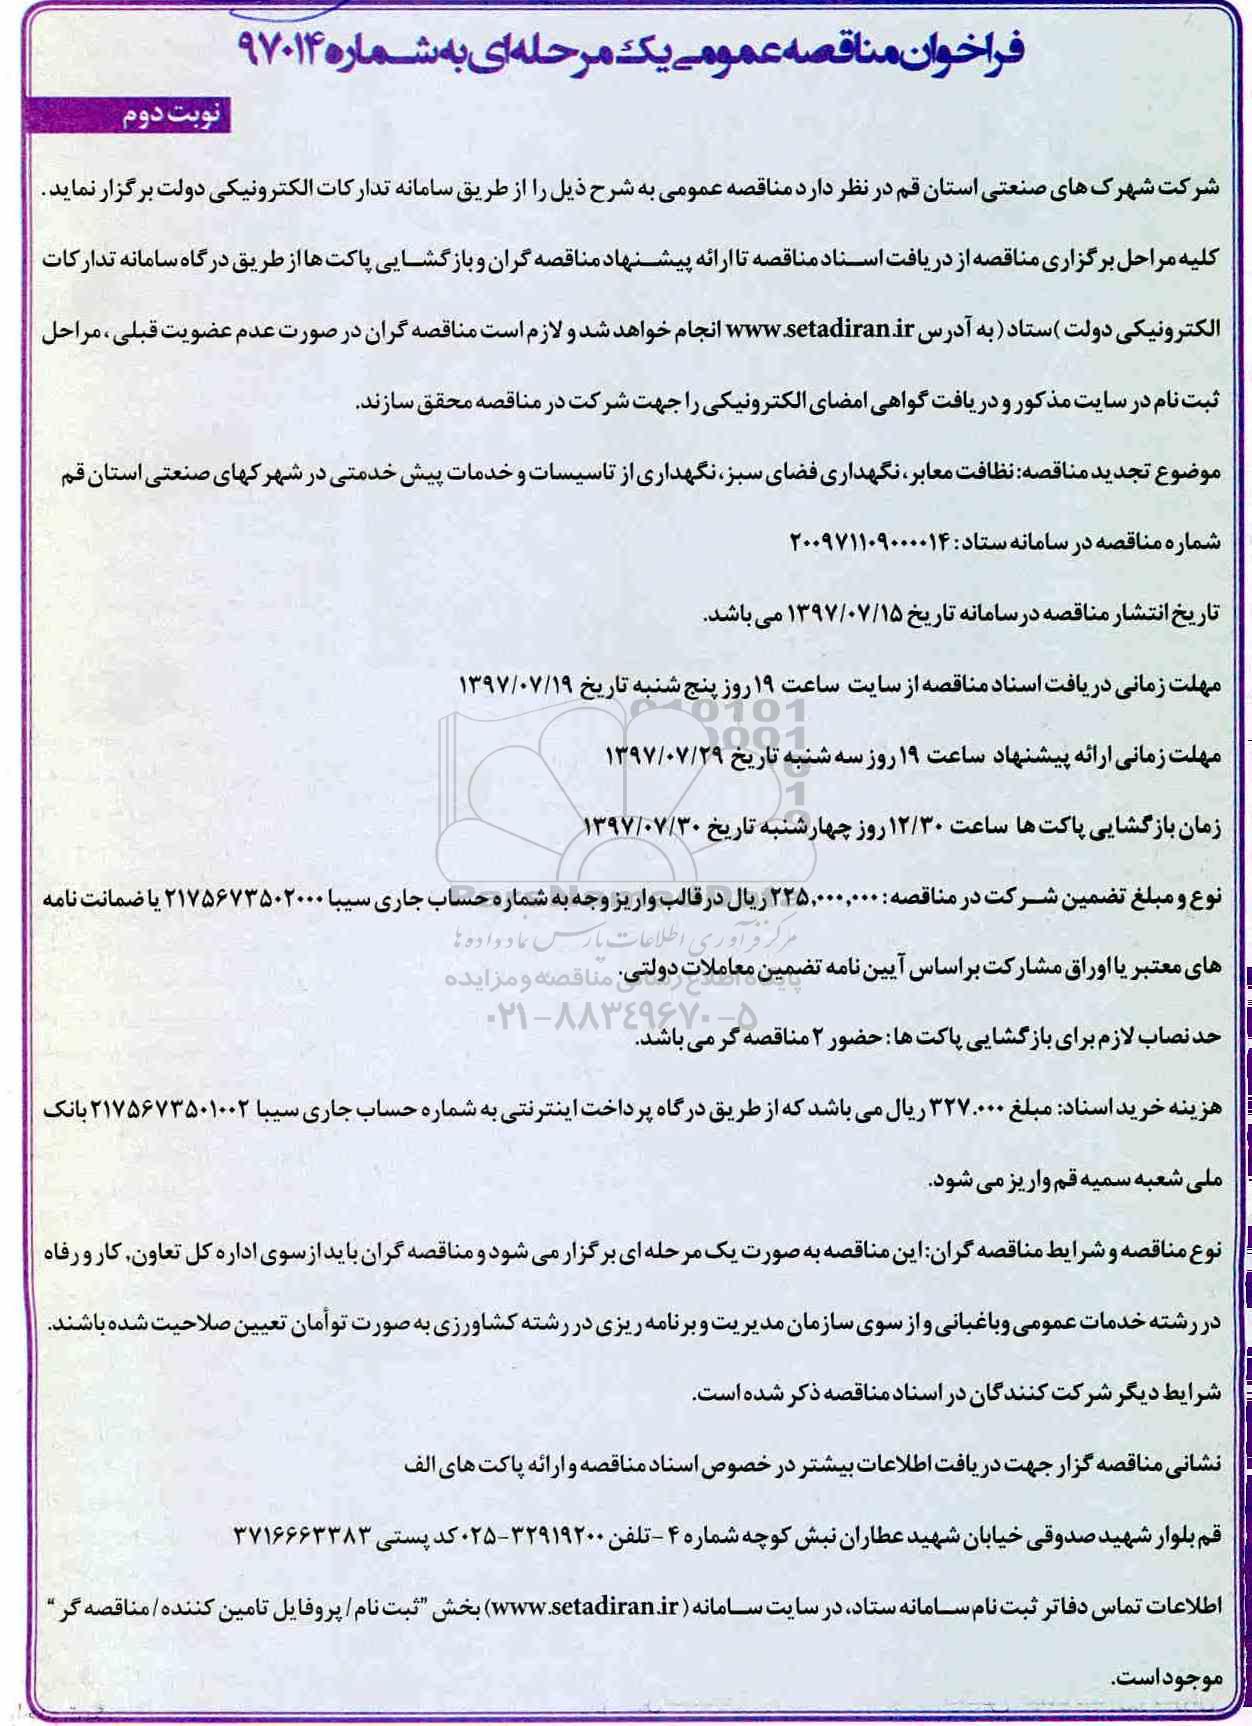 فراخوان مناقصه عمومی یک مرحله‌ای به شماره ۹۷۰۱۴
نوبت دوم
شرکت شهرک های صنعتی استان قم در نظر دارد مناقصه عمومی به شرح ذیل را از طریق سامانه تدارکات الکترونیکی دولت برگزار نماید.
کلیه مراحل برگزاری مناقصه از دریافت اسناد مناقصه تا ارائه پیشنهاد مناقصه گران و بازگشایی پاکت ها از طریق درگاه سامانه تدارکات
الکترونیکی دولت )ستاد( به آدرس www.setadiran.ir انجام خواهد شد و لازم است مناقصه گران در صورت عدم عضویت قبلی، مراحل
ثبت نام در سایت مذکور و دریافت گواهی امضای الکترونیکی را جهت شرکت در مناقصه محقق سازند.
موضوع تجدید مناقصه: نظافت معابر، نگهداری فضای سبز، نگهداری از تاسیسات و خدمات پیش خدمتی در شهرکهای صنعتی استان قم
شماره مناقصه در سامانه ستاد: ۲۰۰۹۷۱۱۰۹۰۰۰۰۱۴
تاریخ انتشار مناقصه در سامانه تاریخ ۱۳۹۷/۰۷/۱۵ می باشد.
مهلت زمانی دریافت اسناد مناقصه از سایت ساعت ۱۹ روز پنج شنبه تاریخ ۱۳۹۷/۰۷/۱۹
مهلت زمانی ارائه پیشنهاد ساعت ۱۹ روز سه شنبه تاریخ ۱۳۹۷/۰۷/۲۹
زمان بازگشایی پاکت ها ساعت ۱۲/۳۰ روز چهارشنبه تاریخ ۱۳۹۷/۰۷/۳۰
نوع و مبلغ تضمین شرکت در مناقصه: ۲۲۵,۰۰۰,۰۰۰ ریال در قالب واریز وجه به شماره حساب جاری سیبا ۲۱۷۵۶۷۳۵۰۲۰۰۰ یا ضمانت نامه
مرکز فرآوری اطلاعات پارس نماد داده ها
های معتبر یا اوراق مشارکت بر اساس آیین نامه تضمین معاملات دولتی.
پایگاه اطلاع رسانی مناقصه و مزایده
۰۲۱-۸۸۳۴۹۶۷۰-۵
حد نصاب لازم برای بازگشایی پاکت ها: حضور ۲ مناقصه گر می باشد.
هزینه خرید اسناد: مبلغ ۳۲۷.۰۰۰ ریال می باشد که از طریق درگاه پرداخت اینترنتی به شماره حساب جاری سیبا ۲۱۷۵۶۷۳۵۰۱۰۰۲ بانک
ملی شعبه سمیه قم واریز می شود.
نوع مناقصه و شرایط مناقصه گران: این مناقصه به صورت یک مرحله ای برگزار می شود و مناقصه گران باید از سوی اداره کل تعاون، کار و رفاه
در رشته خدمات عمومی و باغبانی و از سوی سازمان مدیریت و برنامه ریزی در رشته کشاورزی به صورت توأمان تعیین صلاحیت شده باشند.
شرایط دیگر شرکت کنندگان در اسناد مناقصه ذکر شده است.
نشانی مناقصه گزار جهت دریافت اطلاعات بیشتر در خصوص اسناد مناقصه و ارائه پاکت های الف
قم بلوار شهید صدوقی خیابان شهید عطاران نبش کوچه شماره ۴ - تلفن ۳۲۹۱۹۲۰۰-۰۲۵ کد پستی ۳۷۱۶۶۶۳۳۸۳
اطلاعات تماس دفاتر ثبت نام سامانه ستاد، در سایت سامانه (www.setadiran.ir) بخش "ثبت نام/ پروفایل تامین کننده/ مناقصه گر"
موجود است.